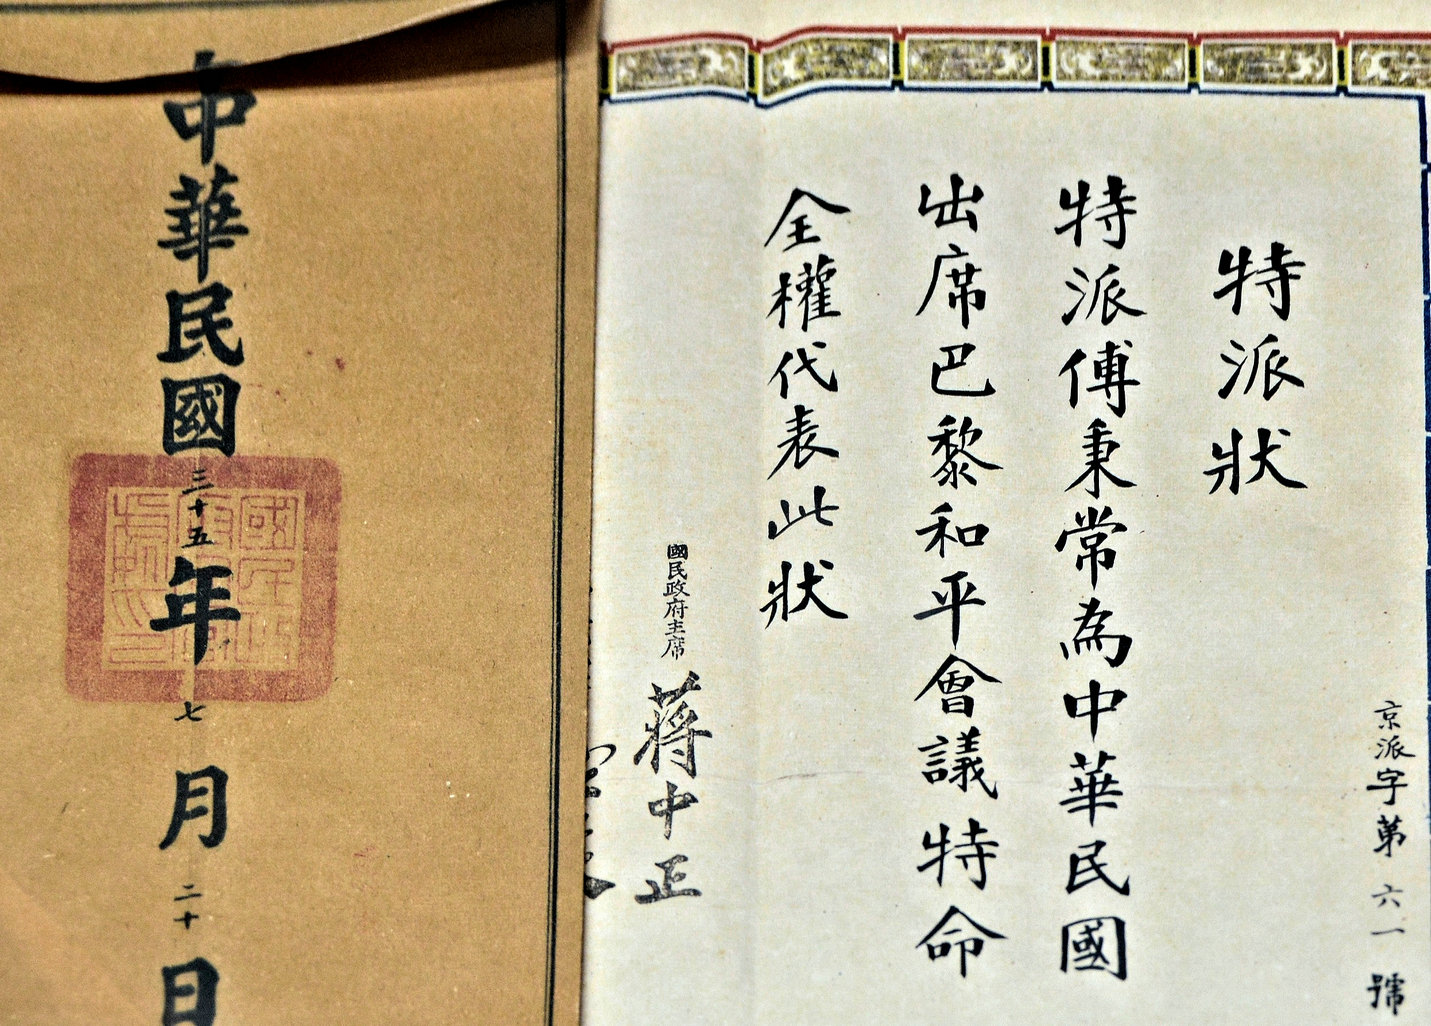 京派字第六一號
特派狀
特派傅秉常為中華民國
出席巴黎和平會議特命
全權代表此狀
國民政府主席
蔣中正
中華民國三十五年七月二十日